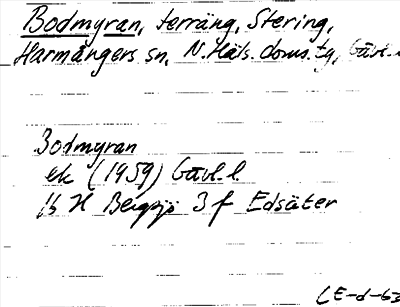 Bodmyran, terräng, Stering,
Harmångers sn, N. Häls. doms. tg, Gävl.
Bodmyran
ek (1959) Gävl. l.
16 H Bergsjö 3 f Edsäter